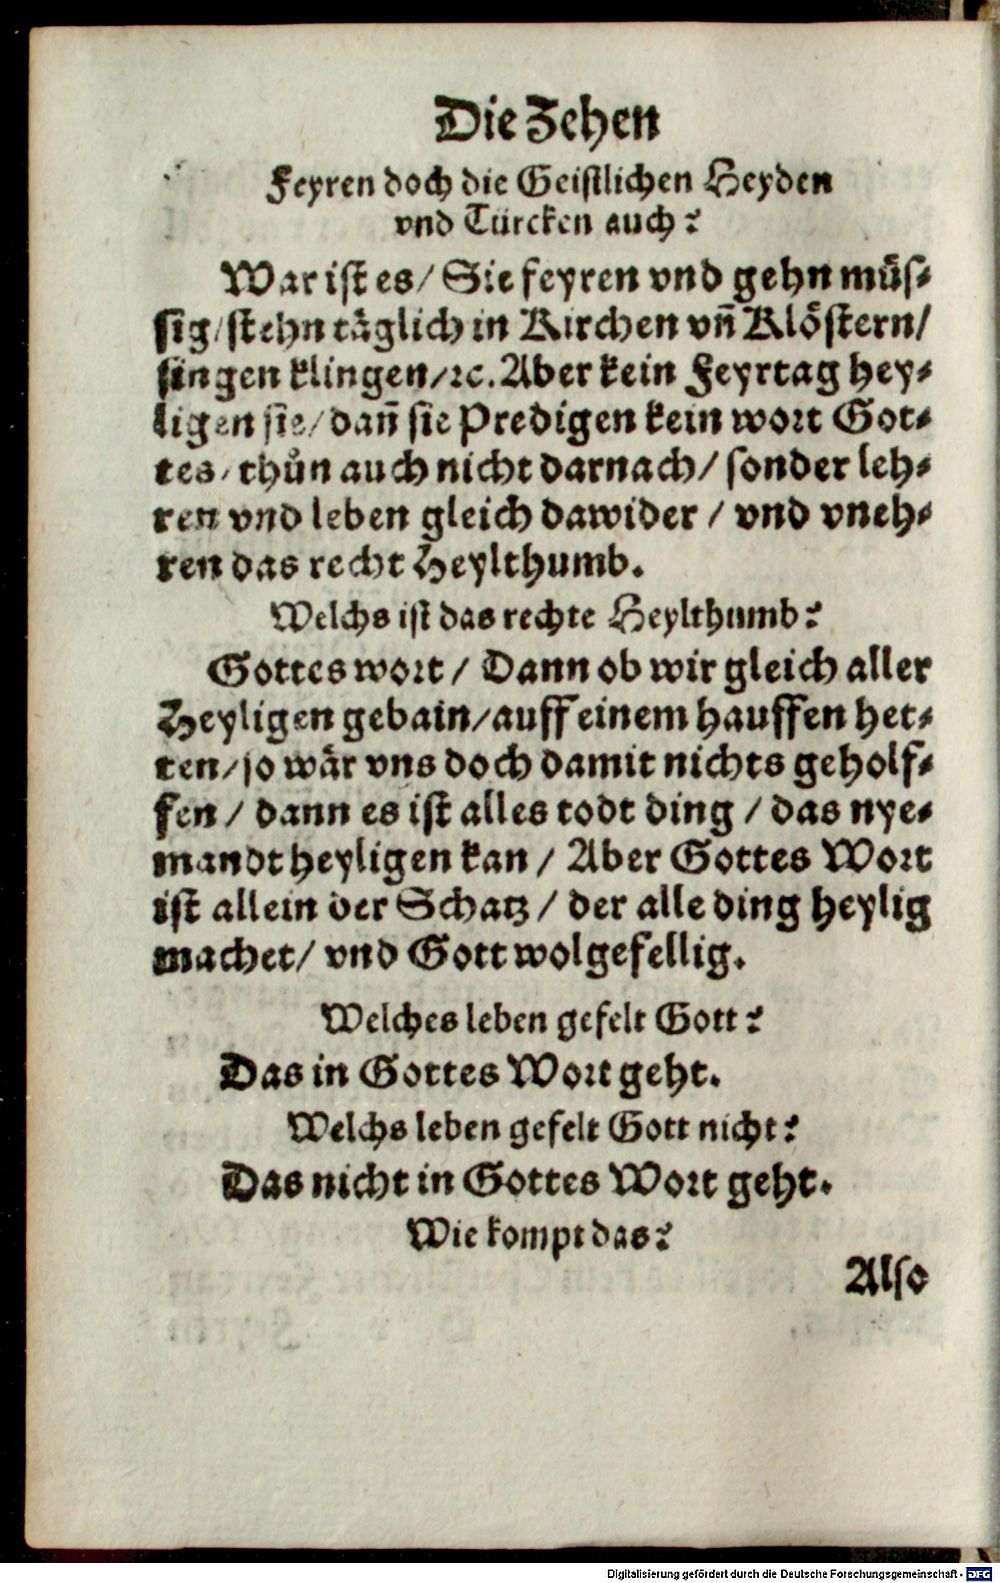 Die Zehen
Feyren doch die Geistlichen Heyden
vnd Türcken auch?
War ist es/ Sie feyren vnd gehn müs-
sig/ stehn täglich in Kirchen vñ Klöstern/
singen klingen/ ꝛc. Aber kein Feyrtag hey-
ligen sie/ dañ sie Predigen kein wort Got-
tes/ thůn auch nicht darnach/ sonder leh-
ren vnd leben gleich dawider / vnd vneh-
ren das recht Heylthumb.
Welchs ist das rechte Heylthumb?
Gottes wort / Dann ob wir gleich aller
Heyligen gebain/ auff einem hauffen het-
ten/ so wär vns doch damit nichts geholf-
fen / dann es ist alles todt ding / das nye-
mandt heyligen kan / Aber Gottes Wort
ist allein der Schatz / der alle ding heylig
machet/ vnd Gott wolgefellig.
Welches leben gefelt Gott?
Das in Gottes Wort geht.
Welchs leben gefelt Gott nicht?
Das nicht in Gottes Wort geht.
Wie kompt das?
Also
Digitalisierung gefördert durch die Deutsche Forschungsgemeinschaft - DFG